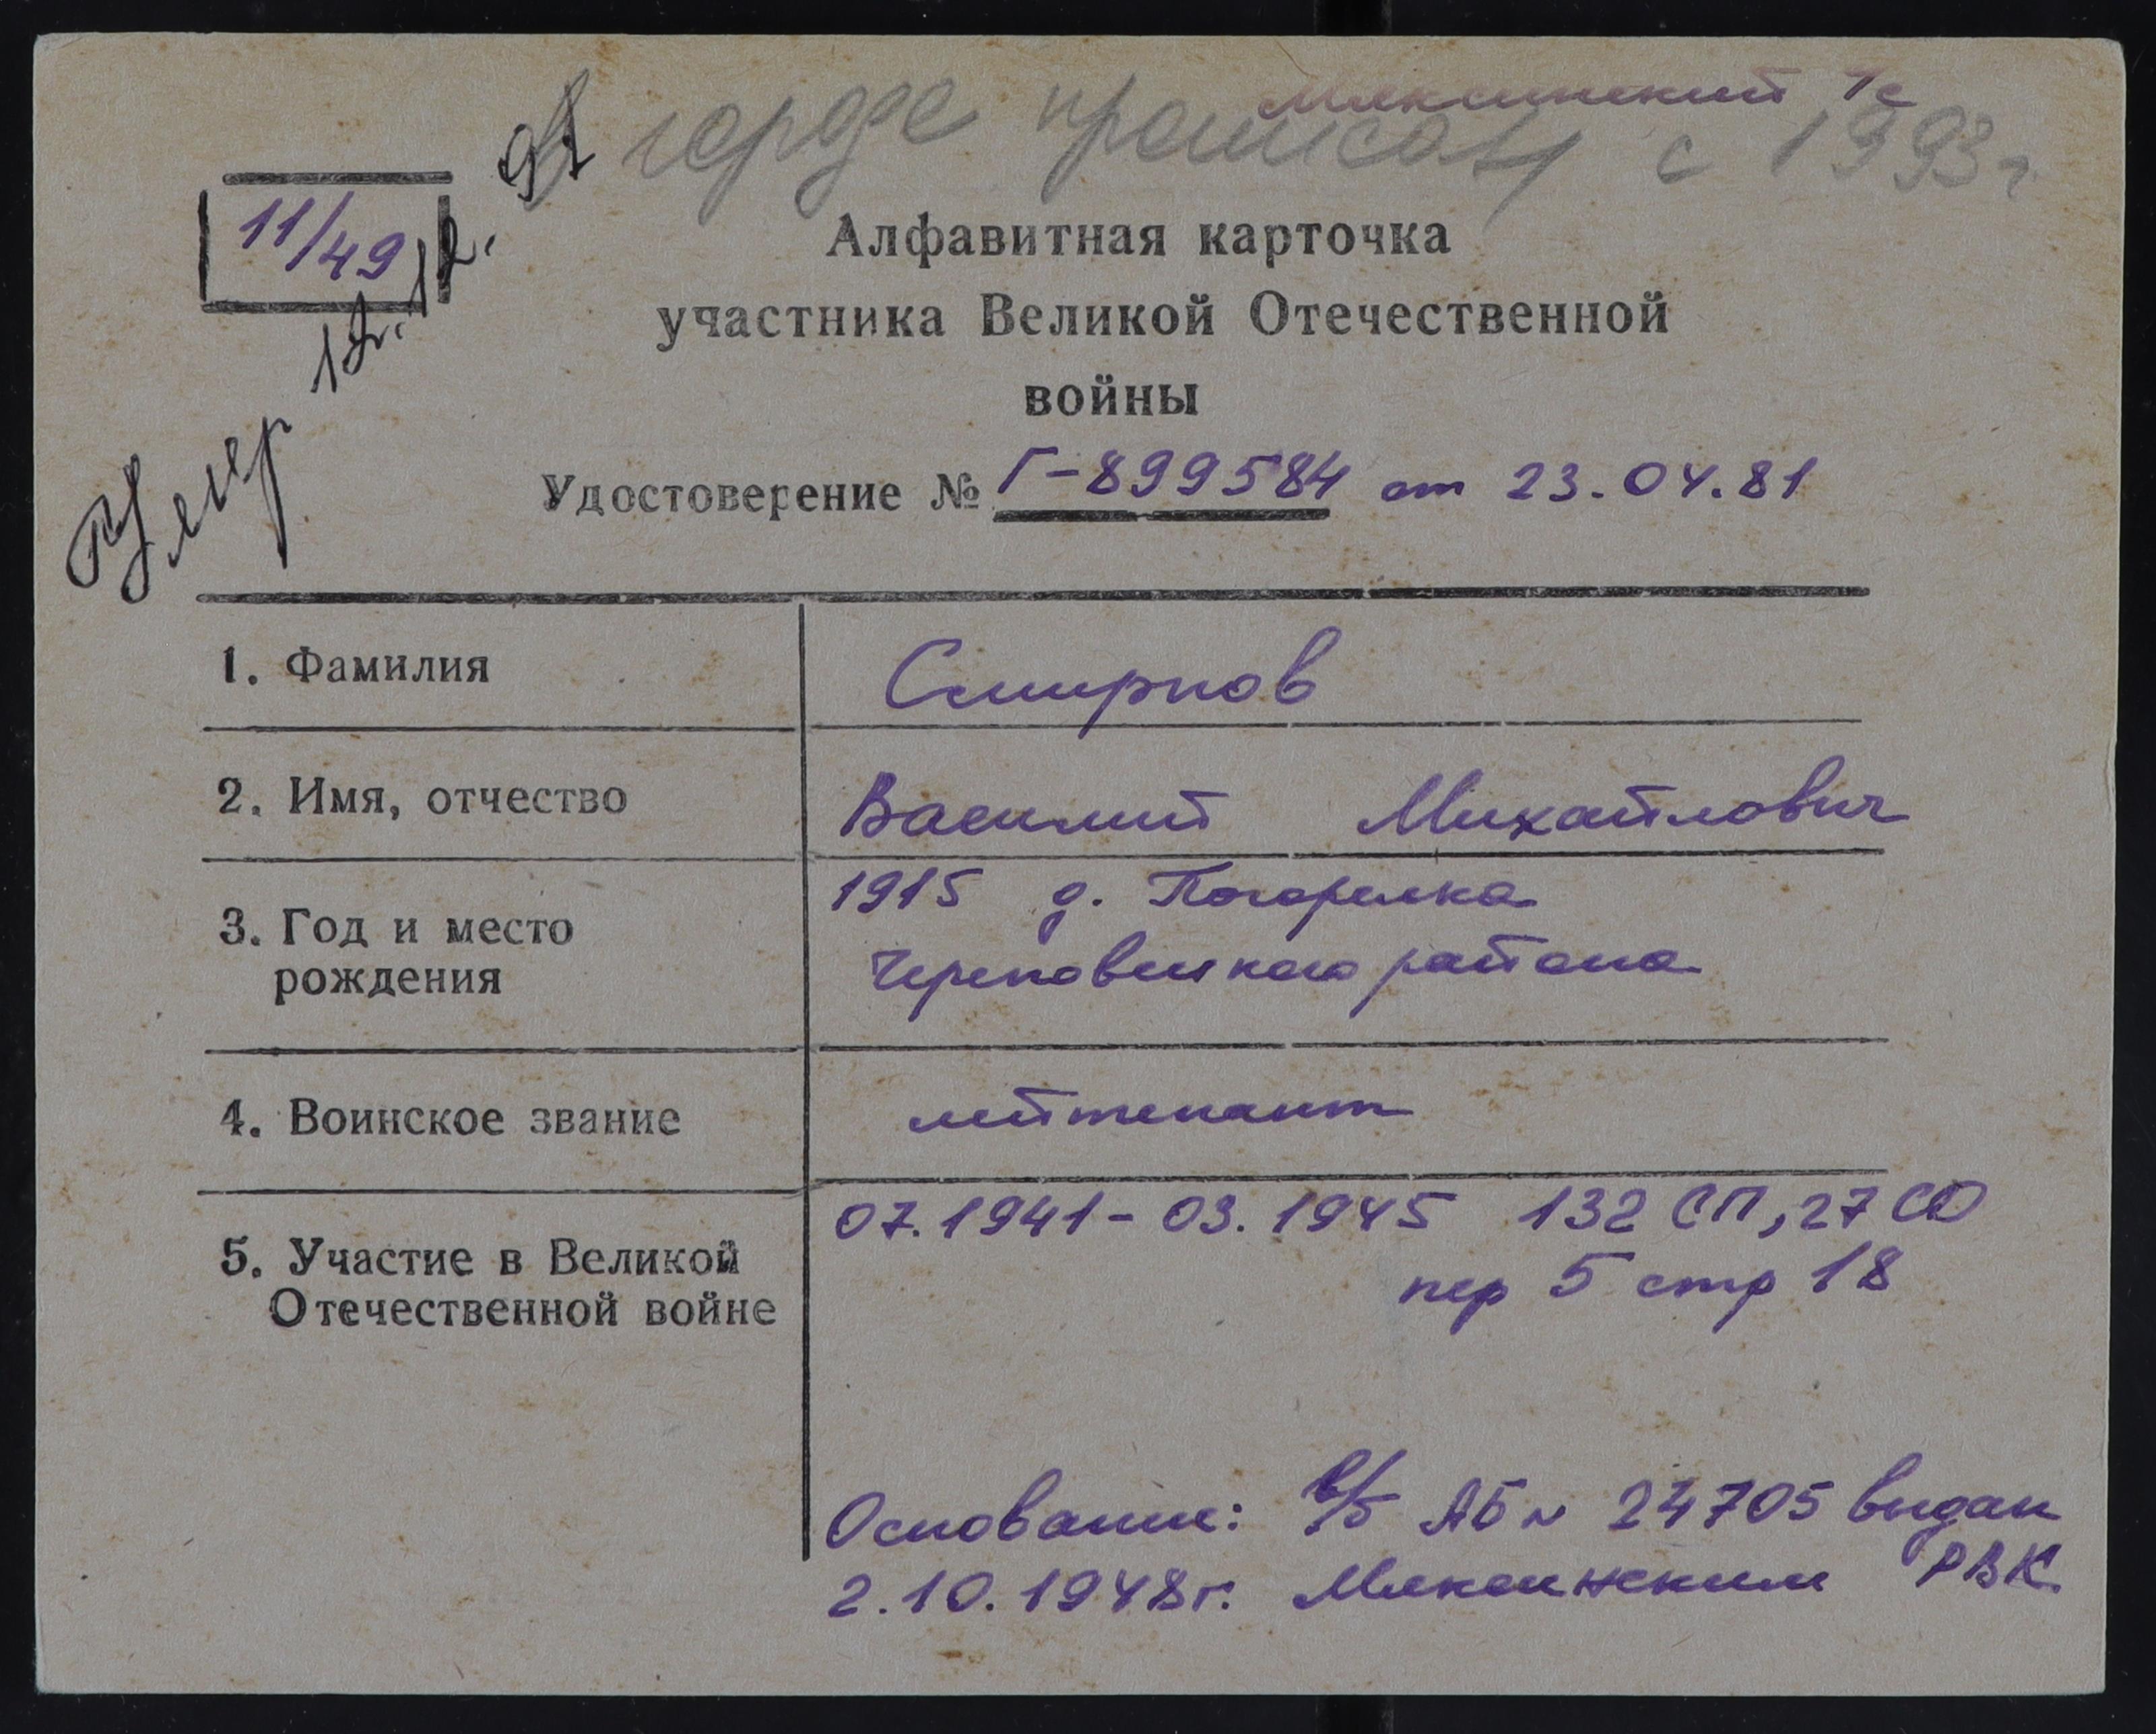 Мяксинский с/с
В городе прописан с 1993 г.
11/49
Умер 12.12.91
Алфавитная карточка
участника Великой Отечественной
войны
Удостоверение № Г-899584 от 23.04.81
1. Фамилия Смирнов
2. Имя, отчество Василий Михайлович
3. Год и место
рождения
1915 д. Погорелка
Череповецкого района
4. Воинское звание лейтенант
5. Участие в Великой
Отечественной войне
07.1941-03.1945 132 СП, 27 СД
пер 5 стр 18
Основание: в/б АБ № 24705 выдан
2.10.1948г. Мяксинским РВК.